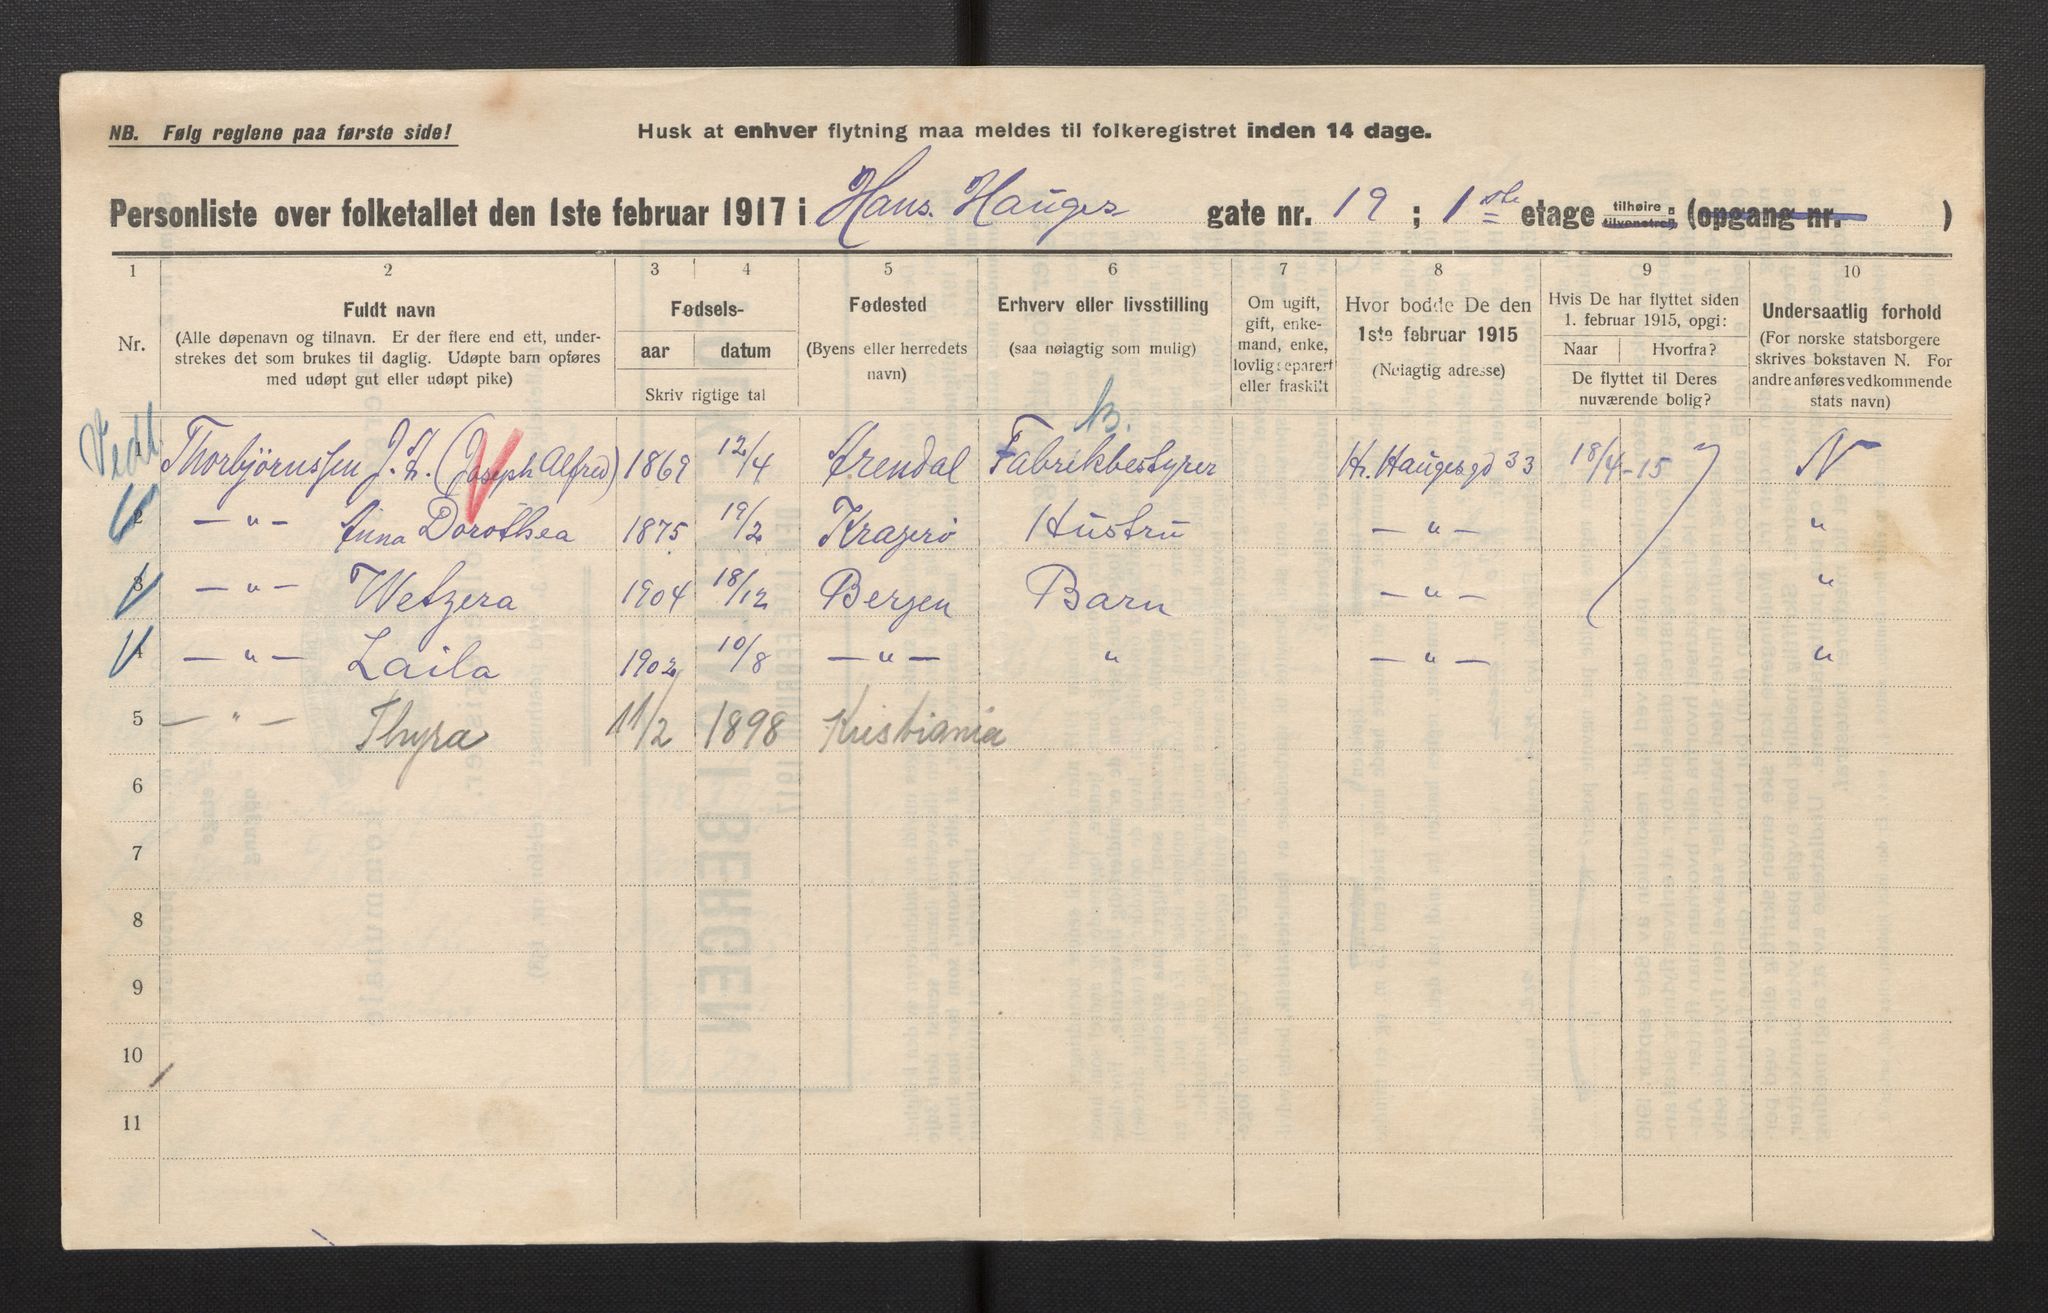 NB. Følg reglene paa første side! Husk at enhver flytning maa meldes til folkeregistret inden 14 dage.
Personliste over folketallet den 1ste februar 1917 i Hans. Hauges gate nr. 19 ; 1ste etage tilhøire, tilvenstre, (opgang nr. )
1 2 3 4 5 6 7 8 9 10
Nr.
Fuldt navn
(Alle døpenavn og tilnavn. Er der flere end ett, under-
strekes det som brukes til daglig. Udøpte barn opføres
med udøpt gut eller udøpt pike)
Fødsels-
aar datum
Skriv rigtige tal
Fødested
(Byens eller herredets
navn)
Erhverv eller livsstilling
(saa nøiagtig som mulig)
Om ugift,
gift, enke-
mand, enke,
lovlig separert
eller fraskilt
Hvor bodde De den
1ste februar 1915
(Nøiagtig adresse)
Hvis De har flyttet siden
1. februar 1915, opgi:
Naar Hvorfra?
De flyttet til Deres
nuværende bolig?
Undersaatlig forhold
(For norske statsborgere
skrives bokstaven N. For
andre anføres vedkommende
stats navn)
Vedl.
1 Thorbjørnssen J. A. (Joseph Alfred) 1869 12/4 Arendal Fabrikbestyrer Hr. Haugesgd 33 18/4-15 N
2 — " — Anna Dorothea 1875 19/2 Kragerö Hustru — " — "
3 — " — Wetzera 1904 18/12 Bergen Barn — " — "
4 — " — Laila 1902 10/8 — " — " — " — "
5 — " — Thyra 11/2 1898 Kristiania
6
7
8
9
10
11